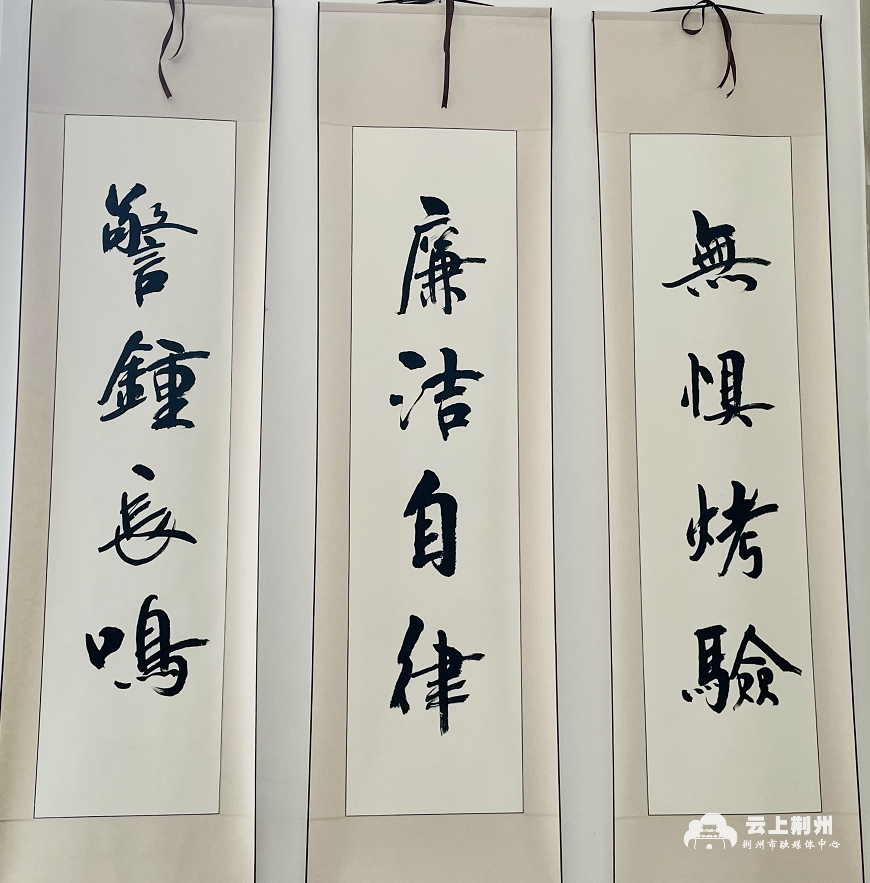 無懼烤驗
廉洁自律
警鍾長鳴
云上荆州
荆州市融媒体中心